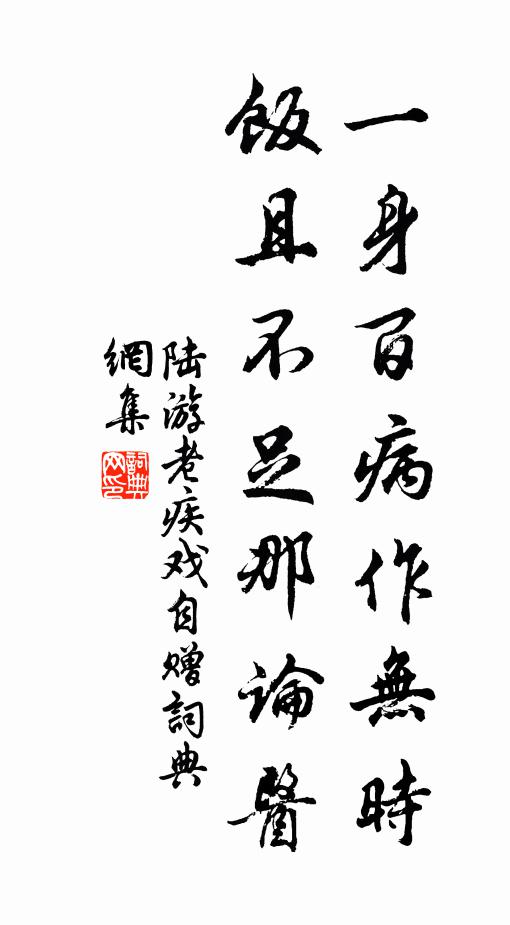 一身百病作無時
飯且不足那論醫
陆游老疾戏自赠詞典
網集
詞典
网印